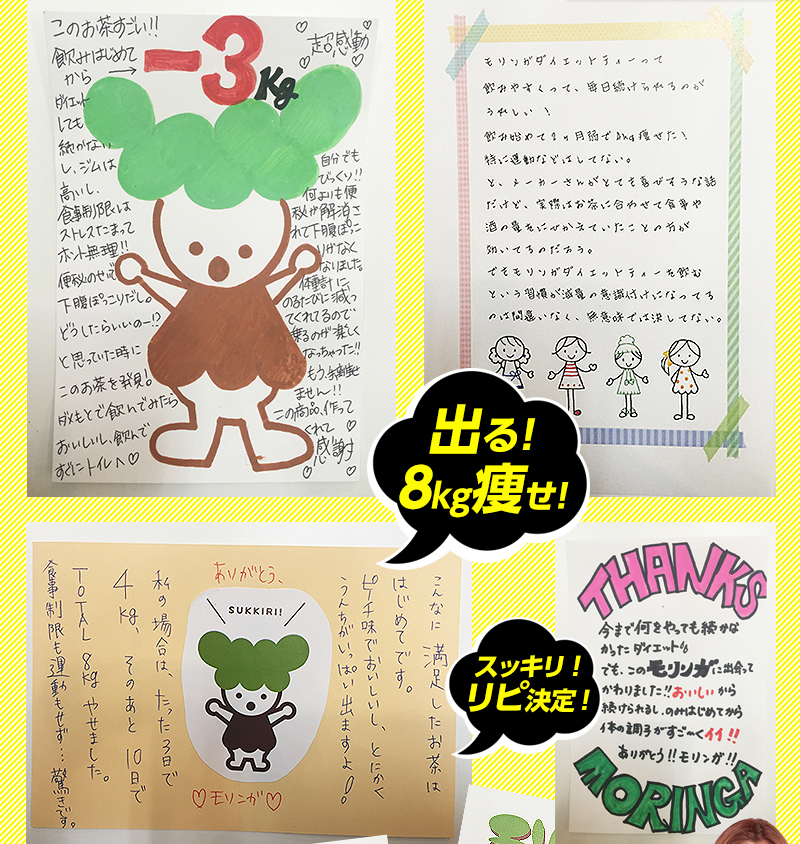 このお茶すごい!!
飲みはじめて
から→
ダイエット
しても
続かない
し、ジムは
高いし、
食事制限は
ストレスたまって
ホント無理!!
便秘のせいで
下腹ぽっこりだし。
どうしたらいいのー!?
と思っていた時に
このお茶を発見!
ダメもとで飲んでみたら
おいしいし、飲んで
すぐにトイレへ♡
-3Kg
♡超感動♡
自分でも
びっくり!!
何よりも便
秘が解消さ
れて下腹ぽっこ
りがなく
なりました。
体重計に
のるたびに減っ
てくれてるので
乗るのが楽しく
なっちゃった!!
もう、手離せ
ません!!
この商品、作って
くれて
♡感謝♡
モリンガダイエットティーって
飲みやすくって、毎日続けられるのが
うれしい!
飲み始めて2ヶ月弱で4kg痩せた!
特に運動などはしてない。
と、メーカーさんがとても喜びそうな話
だけど、実際はお茶に合わせて食事や
酒の量をにひかえていたことの方が
効いてるのだろう。
でもモリンガダイエットティーを飲む
という習慣が減量の意識付けになってる
のは間違いなく、無意味では決してない。
出る!
8kg痩せ!
こんなに満足したお茶は
はじめてです。
ピーチ味でおいしいし、とにかく
うんちがいっぱい出ますよ!。
ありがとう、
SUKKIRI!
♡モリンガ♡
私の場合は、たった3日で
4kg、そのあと10日で
TOTAL 8kgやせました。
食事制限も運動もせず…驚きです。
スッキリ!
リピ決定!
THANKS
今まで何をやっても続かな
かったダイエット
でも、このモリンガに出会って
かわりました!!おいしいから
続けられるし、のみはじめてから
体の調子がすごーくイイ!!
ありがとう!!モリンガ!!
MORINGA